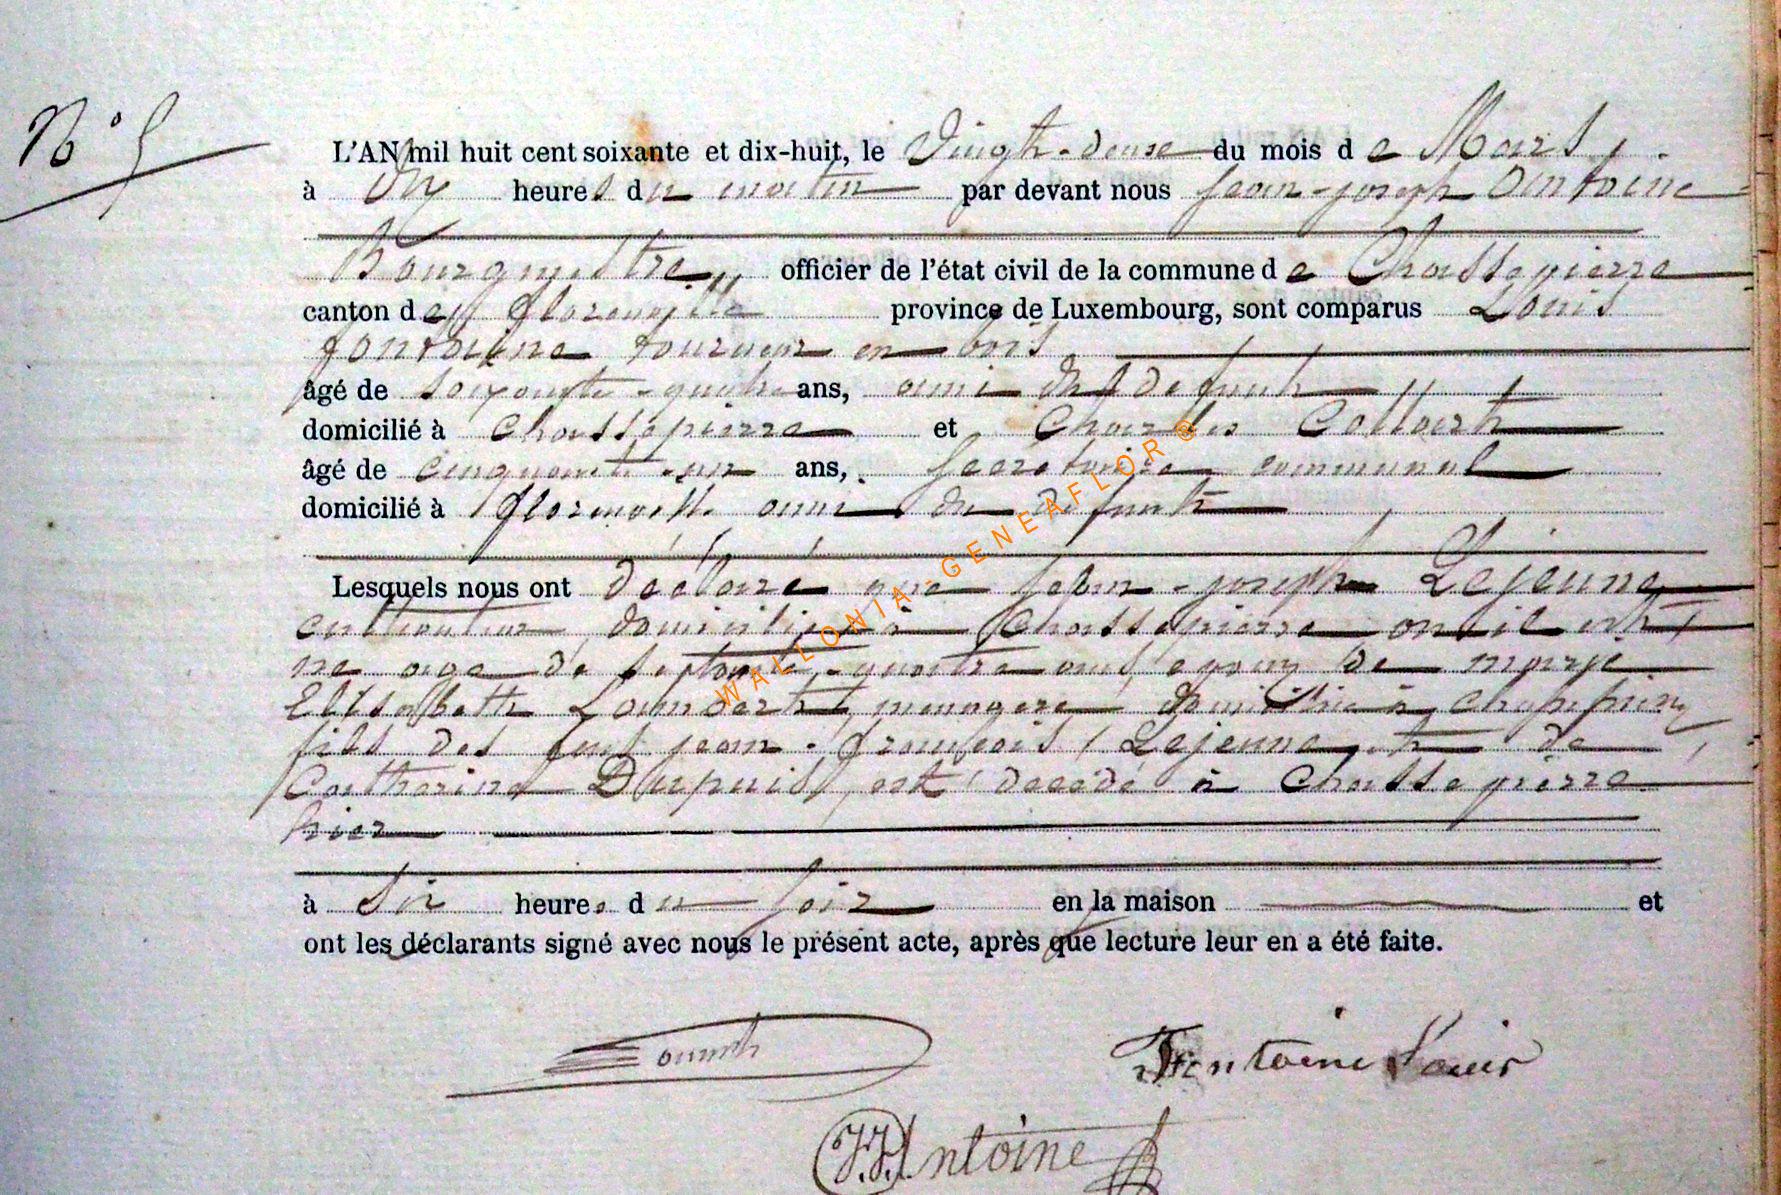 N° 5
L'AN mil huit cent soixante et dix-huit, le Vingt-deuxe du mois de Mars,
à Dix heures du matin par devant nous Jean-joseph Antoine
Bourgmestre officier de l'état civil de la commune de Chassepierre
canton de florenville province de Luxembourg, sont comparus Louis
fontaine tourneur en bois
âgé de soixante-quatre ans, ami du défunt
domicilié à Chassepierre et Charles Collart
âgé de cinquante-un ans, secretaire communal
domicilié à florenville ami du défunt
Lesquels nous ont déclaré que jean-joseph Lejeune
cultivateur domicilié à Chassepierre où il est
né age de septante-quatre ans, epoux de marie
Elisabeth Lambert menagère domiciliée à chassepierre
fils des feus jean-françois Lejeune et de
Catherine Dupuis, est décédé à Chassepierre
hier
à six heures du soir en la maison et
ont les déclarants signé avec nous le présent acte, après que lecture leur en a été faite.
Fontaine Louis
J.J. Antoine
WALLONIA - GENEAFLOR©